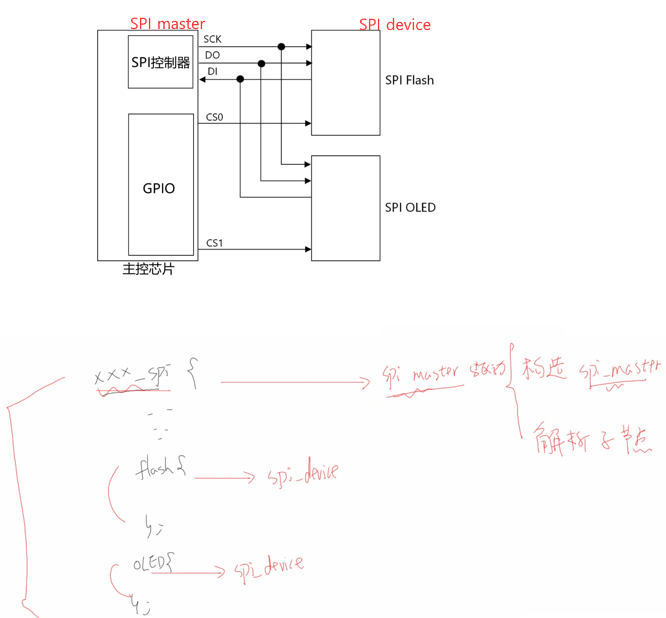 SPI master
SPI device
SCK
SPI控制器
DO
DI
SPI Flash
CS0
GPIO
SPI OLED
CS1
主控芯片
xxx_spi {
spi master 驱动 { 构造 spi_master
解析子节点
flash{
spi_device
};
OLED{
spi_device
};